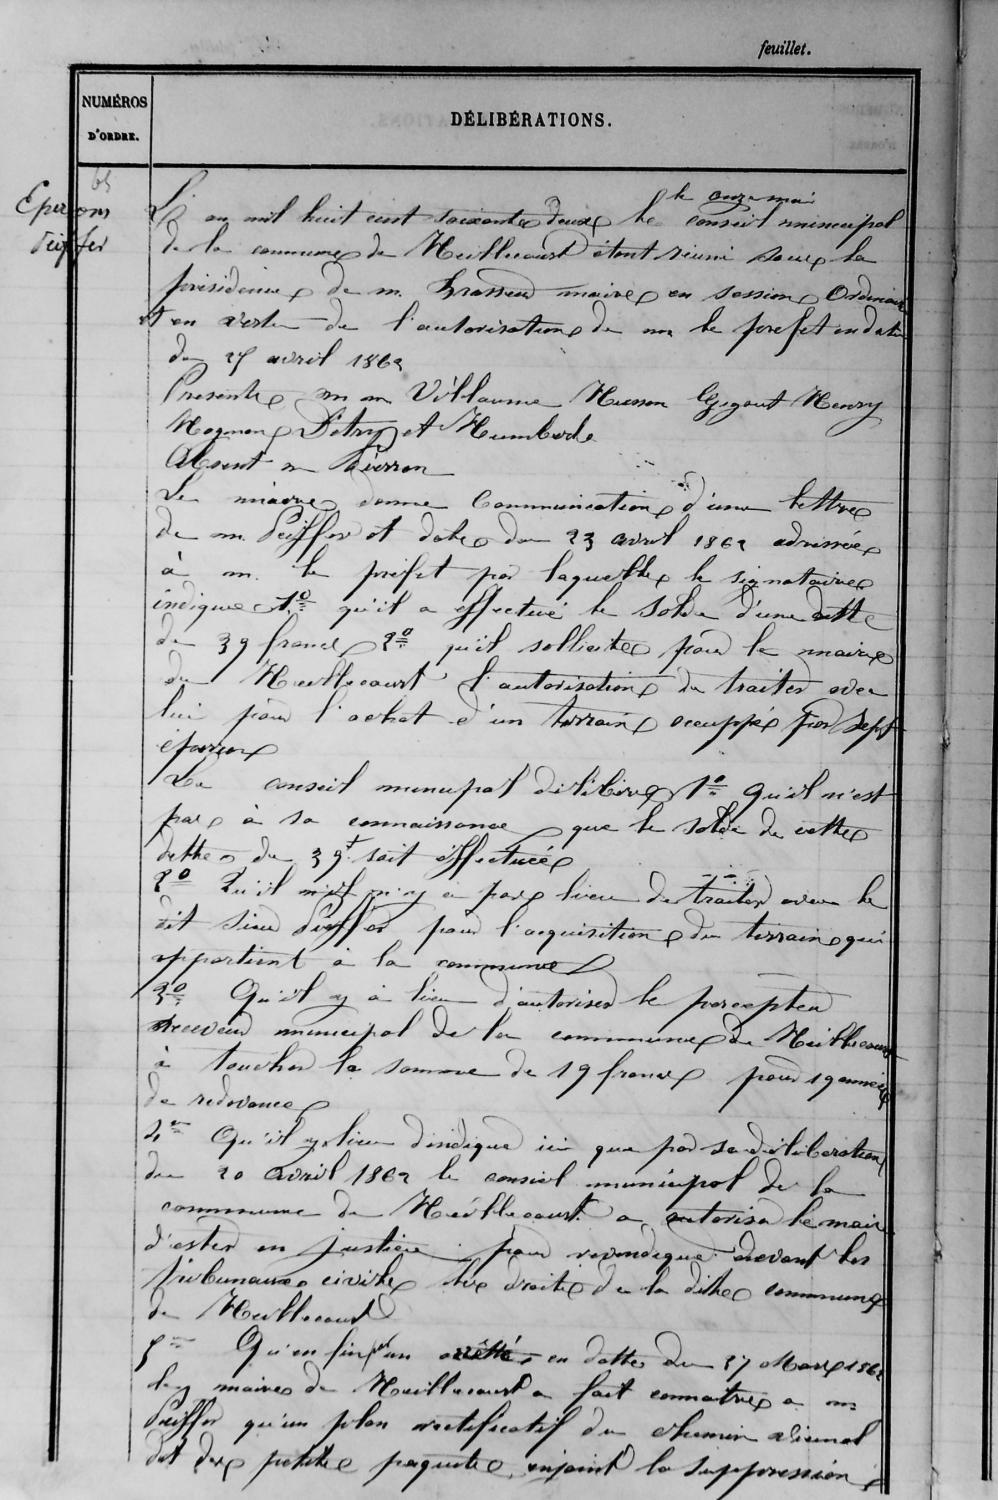 feuillet.
NUMÉROS
D'ORDRE.
DÉLIBÉRATIONS.
65
Eperons
Peiffer
le onze mai
L'an mil huit cent soixante deux le conseil municipal
de la commune de Heillecourt étant réuni sous la
présidence de m. Brasseur maire en session Ordinaire
et en vertu de l'autorisation de m le prefet en date
du 27 avril 1862
Presents m m Villaume Husson Gigout Henry
Hogman Detry et Humbert
Absent m Pierron
Le maire donne Communication d'une lettre
de m. Peiffer et date du 23 avril 1862 adressée
à m. le préfet par laquelle le signataire
indique 1º qu'il a effectué le solde d'une dette
de 39 francs 2º qu'il sollicite pour le maire
de Heillecourt l'autorisation de traiter avec
lui pour l'achat d'un terrain occuppé par sept
éperons
Le conseil municipal délibère 1º Qu'il n'est
pas à sa connaissance que le solde de cette
dette de 39f soit éffectuée
2º Qu'il n'y a pas lieu de traiter avec le
dit sieur Peiffer pour l'acquisition du terrain qui
appartient à la commune
3º Qu'il y à lieu d'autoriser le percepteur
receveur municipal de la commune de Heillecourt
à toucher la somme de 19 francs pour 19 années
de redevance
4º Qu'il y lieu d'indiqué ici que par sa délibération
du 20 avril 1862 le conseil municipal de la
commune de Heillecourt a autorisé le maire
d'ester en justice pour revendiqué devant les
tribunaux civils les droits de la dite commune
de Heillecourt
5º Qu'en fin par un arrêté en datte du 27 Mars 1862
le maire de Heillecourt a fait connaitre a m
Peiffer qu'un plan rectificatif du chemin vicinal
dit des petites paquis enjoint la suppression